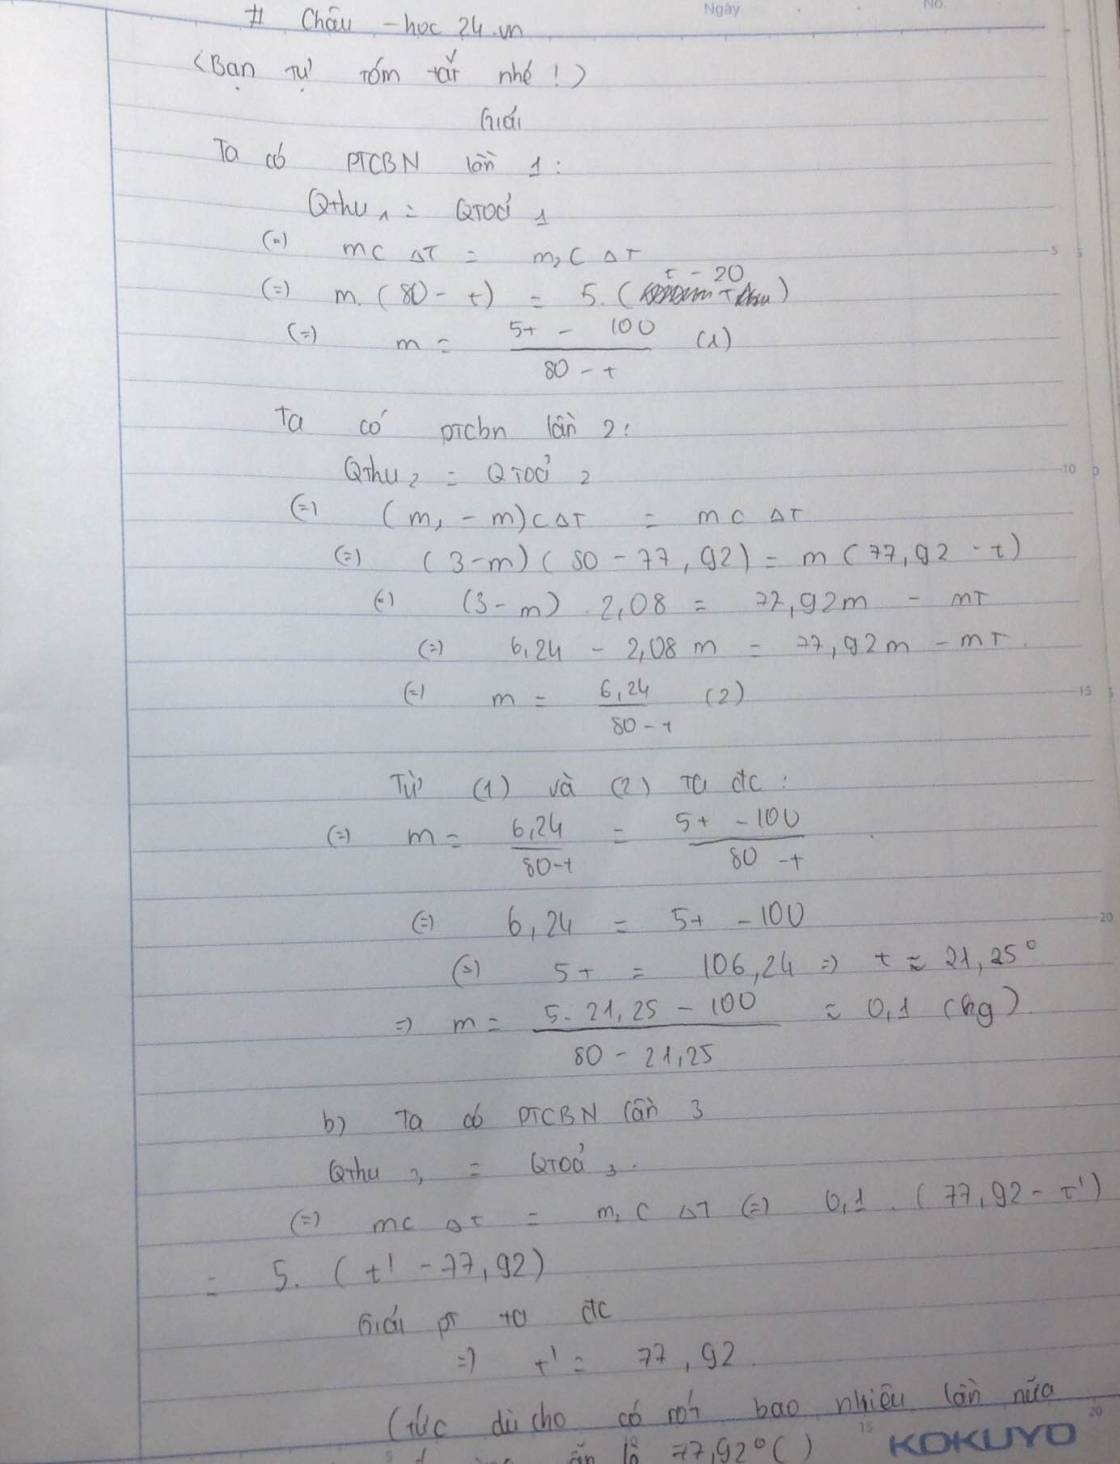 Ngày
No.
# Châu - hoc 24.vn
(Bạn tự tóm tắt nhé!)
Giải
Ta có PTCBN lần 1:
Qthu 1 = Qtoả 1
(=) mc ΔT = m2C ΔT
(=) m.(80 - t) = 5.(t - 20)
(=) m = (5t - 100)/(80 - t) (1)
Ta có ptcbn lần 2:
Qthu 2 = Qtoả 2
(=) (m1 - m)cΔT = mc ΔT
(=) (3-m)(80 - 77,92) = m(77,92 - t)
(=) (3-m) 2,08 = 77,92m - mT
(=) 6,24 - 2,08m = 77,92m - mT.
(=) m = 6,24/(80 - t) (2)
Từ (1) và (2) ta đc:
(=) m = 6,24/(80-t) = (5t - 100)/(80 - t)
(=) 6,24 = 5t - 100
(=) 5t = 106,24 => t ≈ 21,25°
=> m = (5.21,25 - 100)/(80 - 21,25) ≈ 0,1 (kg)
b) Ta có PTCBN lần 3
Qthu 3 = Qtoả 3.
(=) mc Δt = m2 C ΔT (=) 0,1.(77,92 - t')
= 5.(t' - 77,92)
Giải pt ta đc
=> t' = 77,92.
(Tức dù cho có rót bao nhiêu lần nữa
là 77,92°C)
5
10
15
20
15
20
KOKUYO